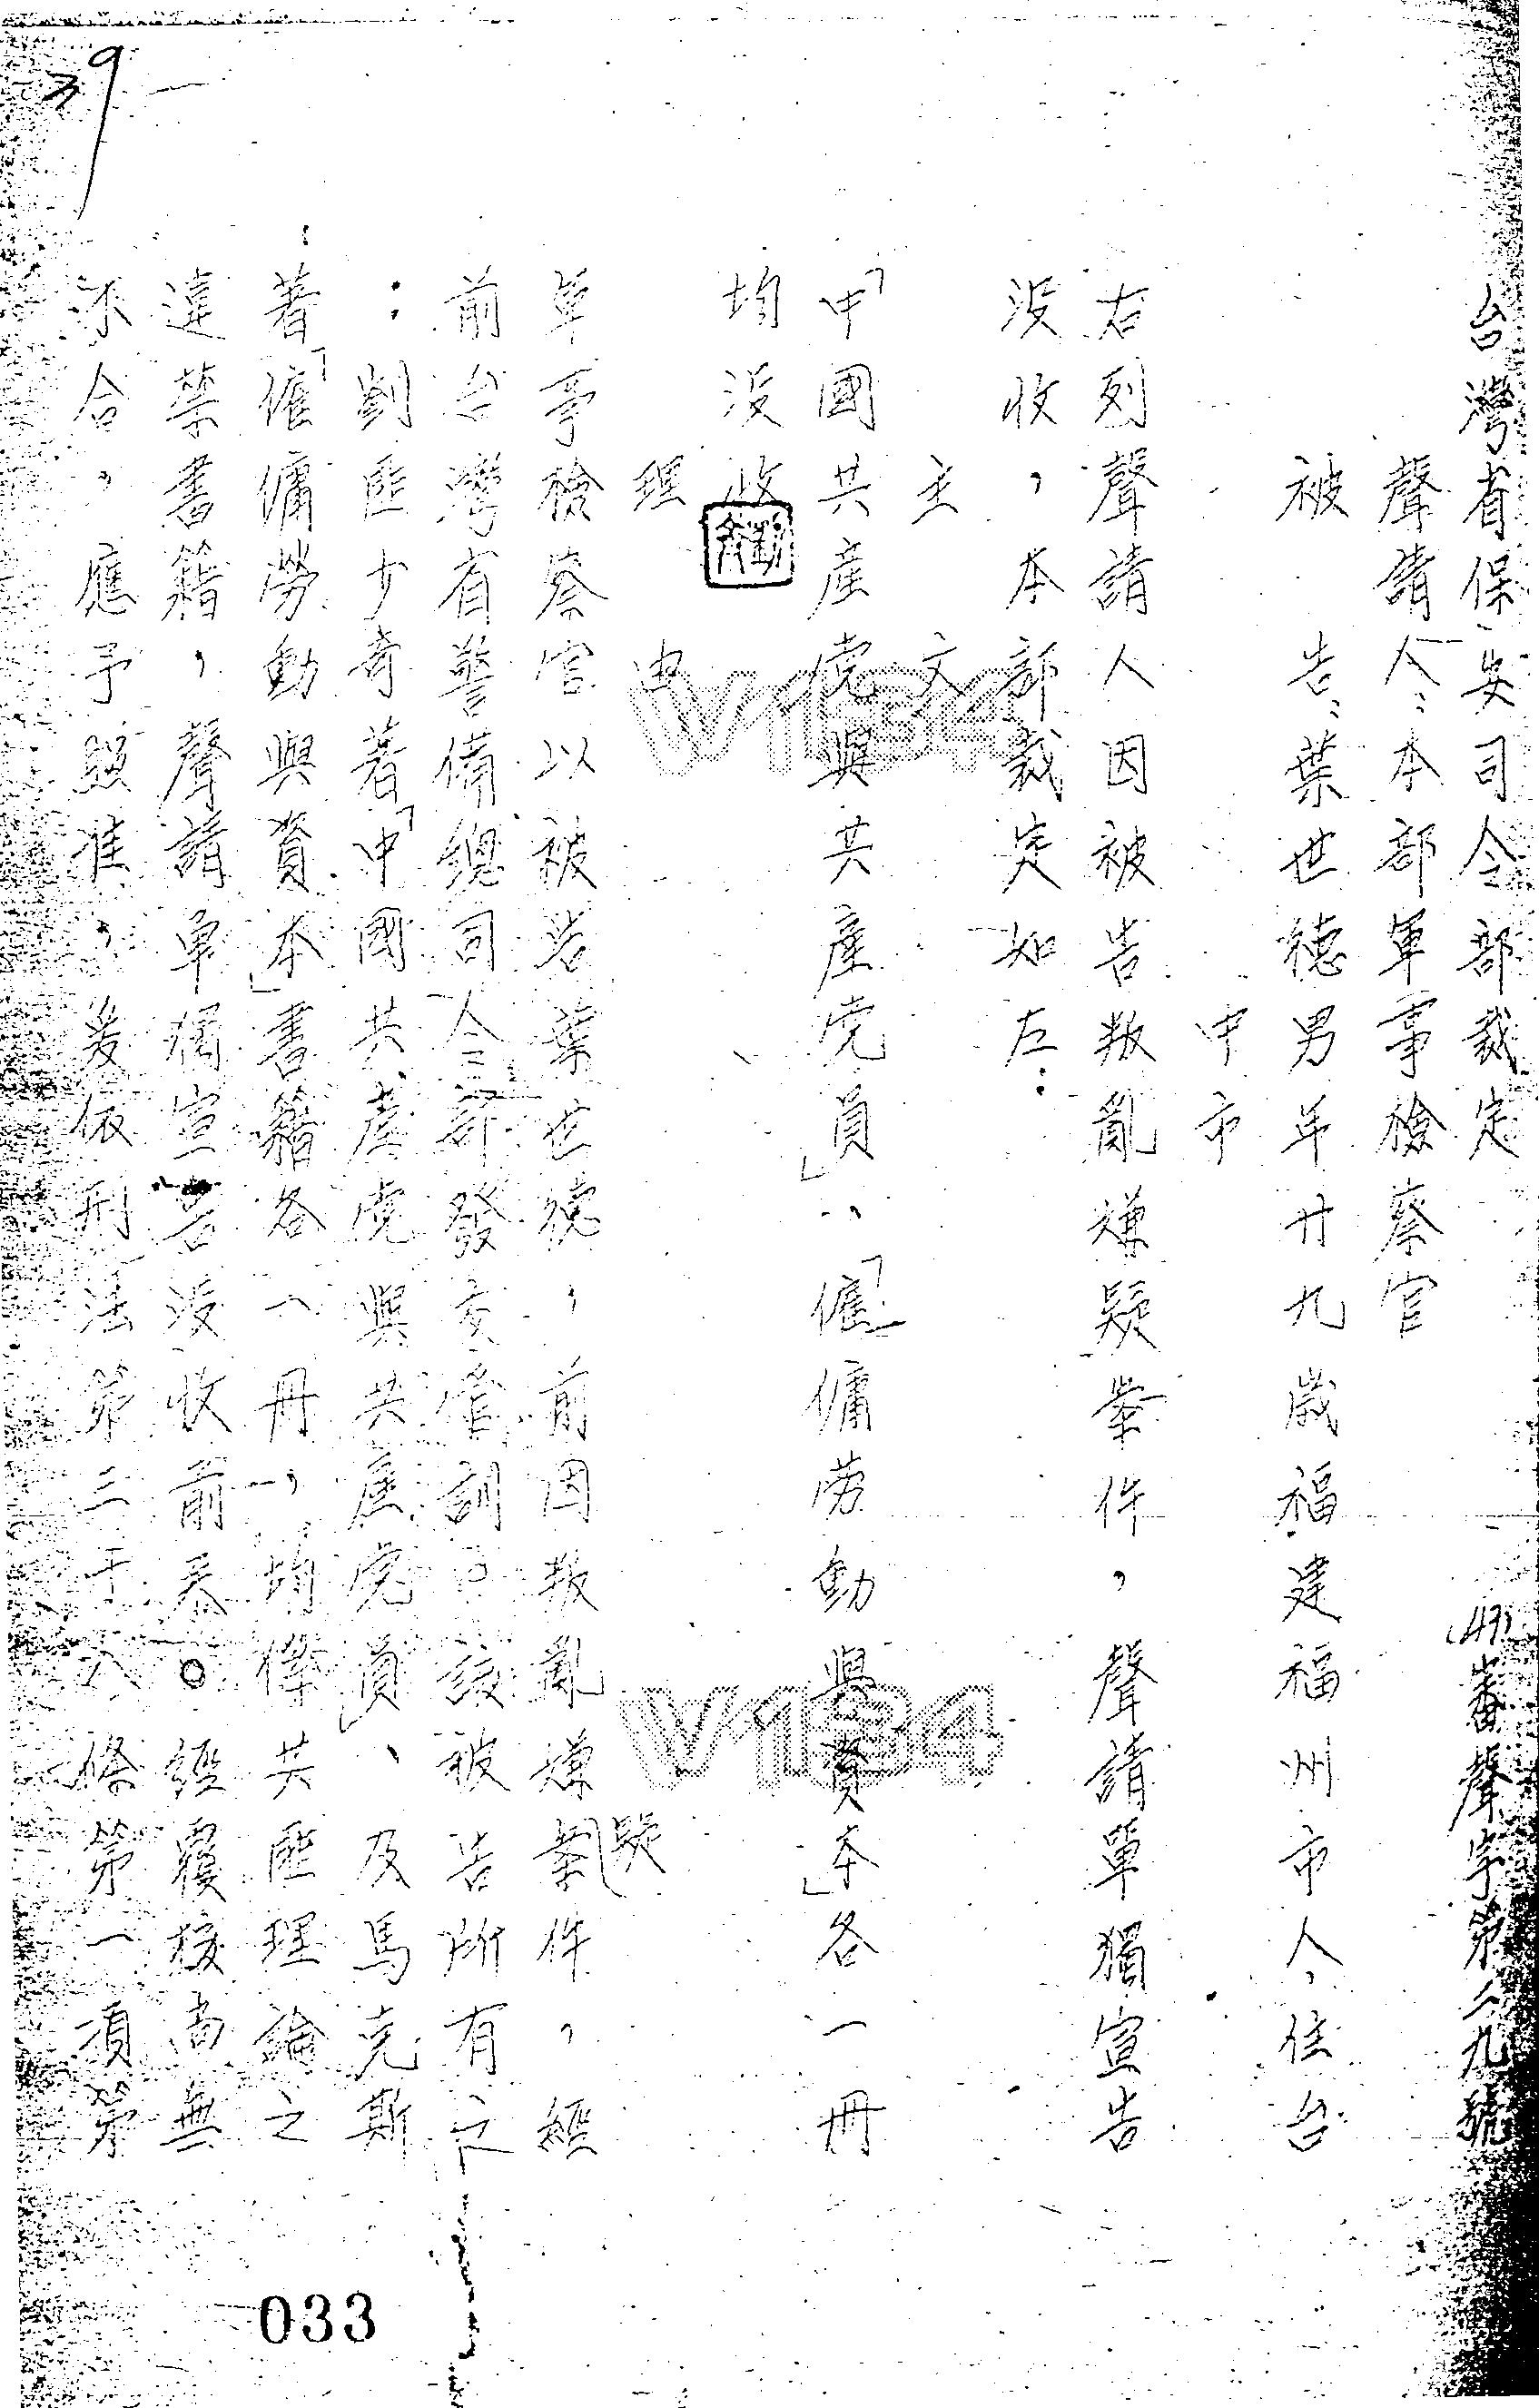 台灣省保安司令部裁定　(47)審聲字第二九號
聲請人：本部軍事檢察官
被告：葉世德男年廿九歲福建福州市人，住台
中市
右列聲請人因被告叛亂嫌疑案件，聲請單獨宣告
沒收，本部裁定如左：
主文
「中國共產党與共產党員」、「僱傭勞動與資本」各一冊
均沒收
理由
本軍事檢察官以被告葉世德，前因叛亂嫌疑案件，經
前台灣省警備總司令部發交管訓　該被告所有之
：劉匪少奇著「中國共產党與共產党員」、及馬克斯
著「僱傭勞動與資本」書籍各一冊，均係共匪理論之
違禁書籍，聲請單獨宣告沒收前來。經覆核尚無
不合，應予照准，爰依刑法第三十八條第一項第
033
W184
W184